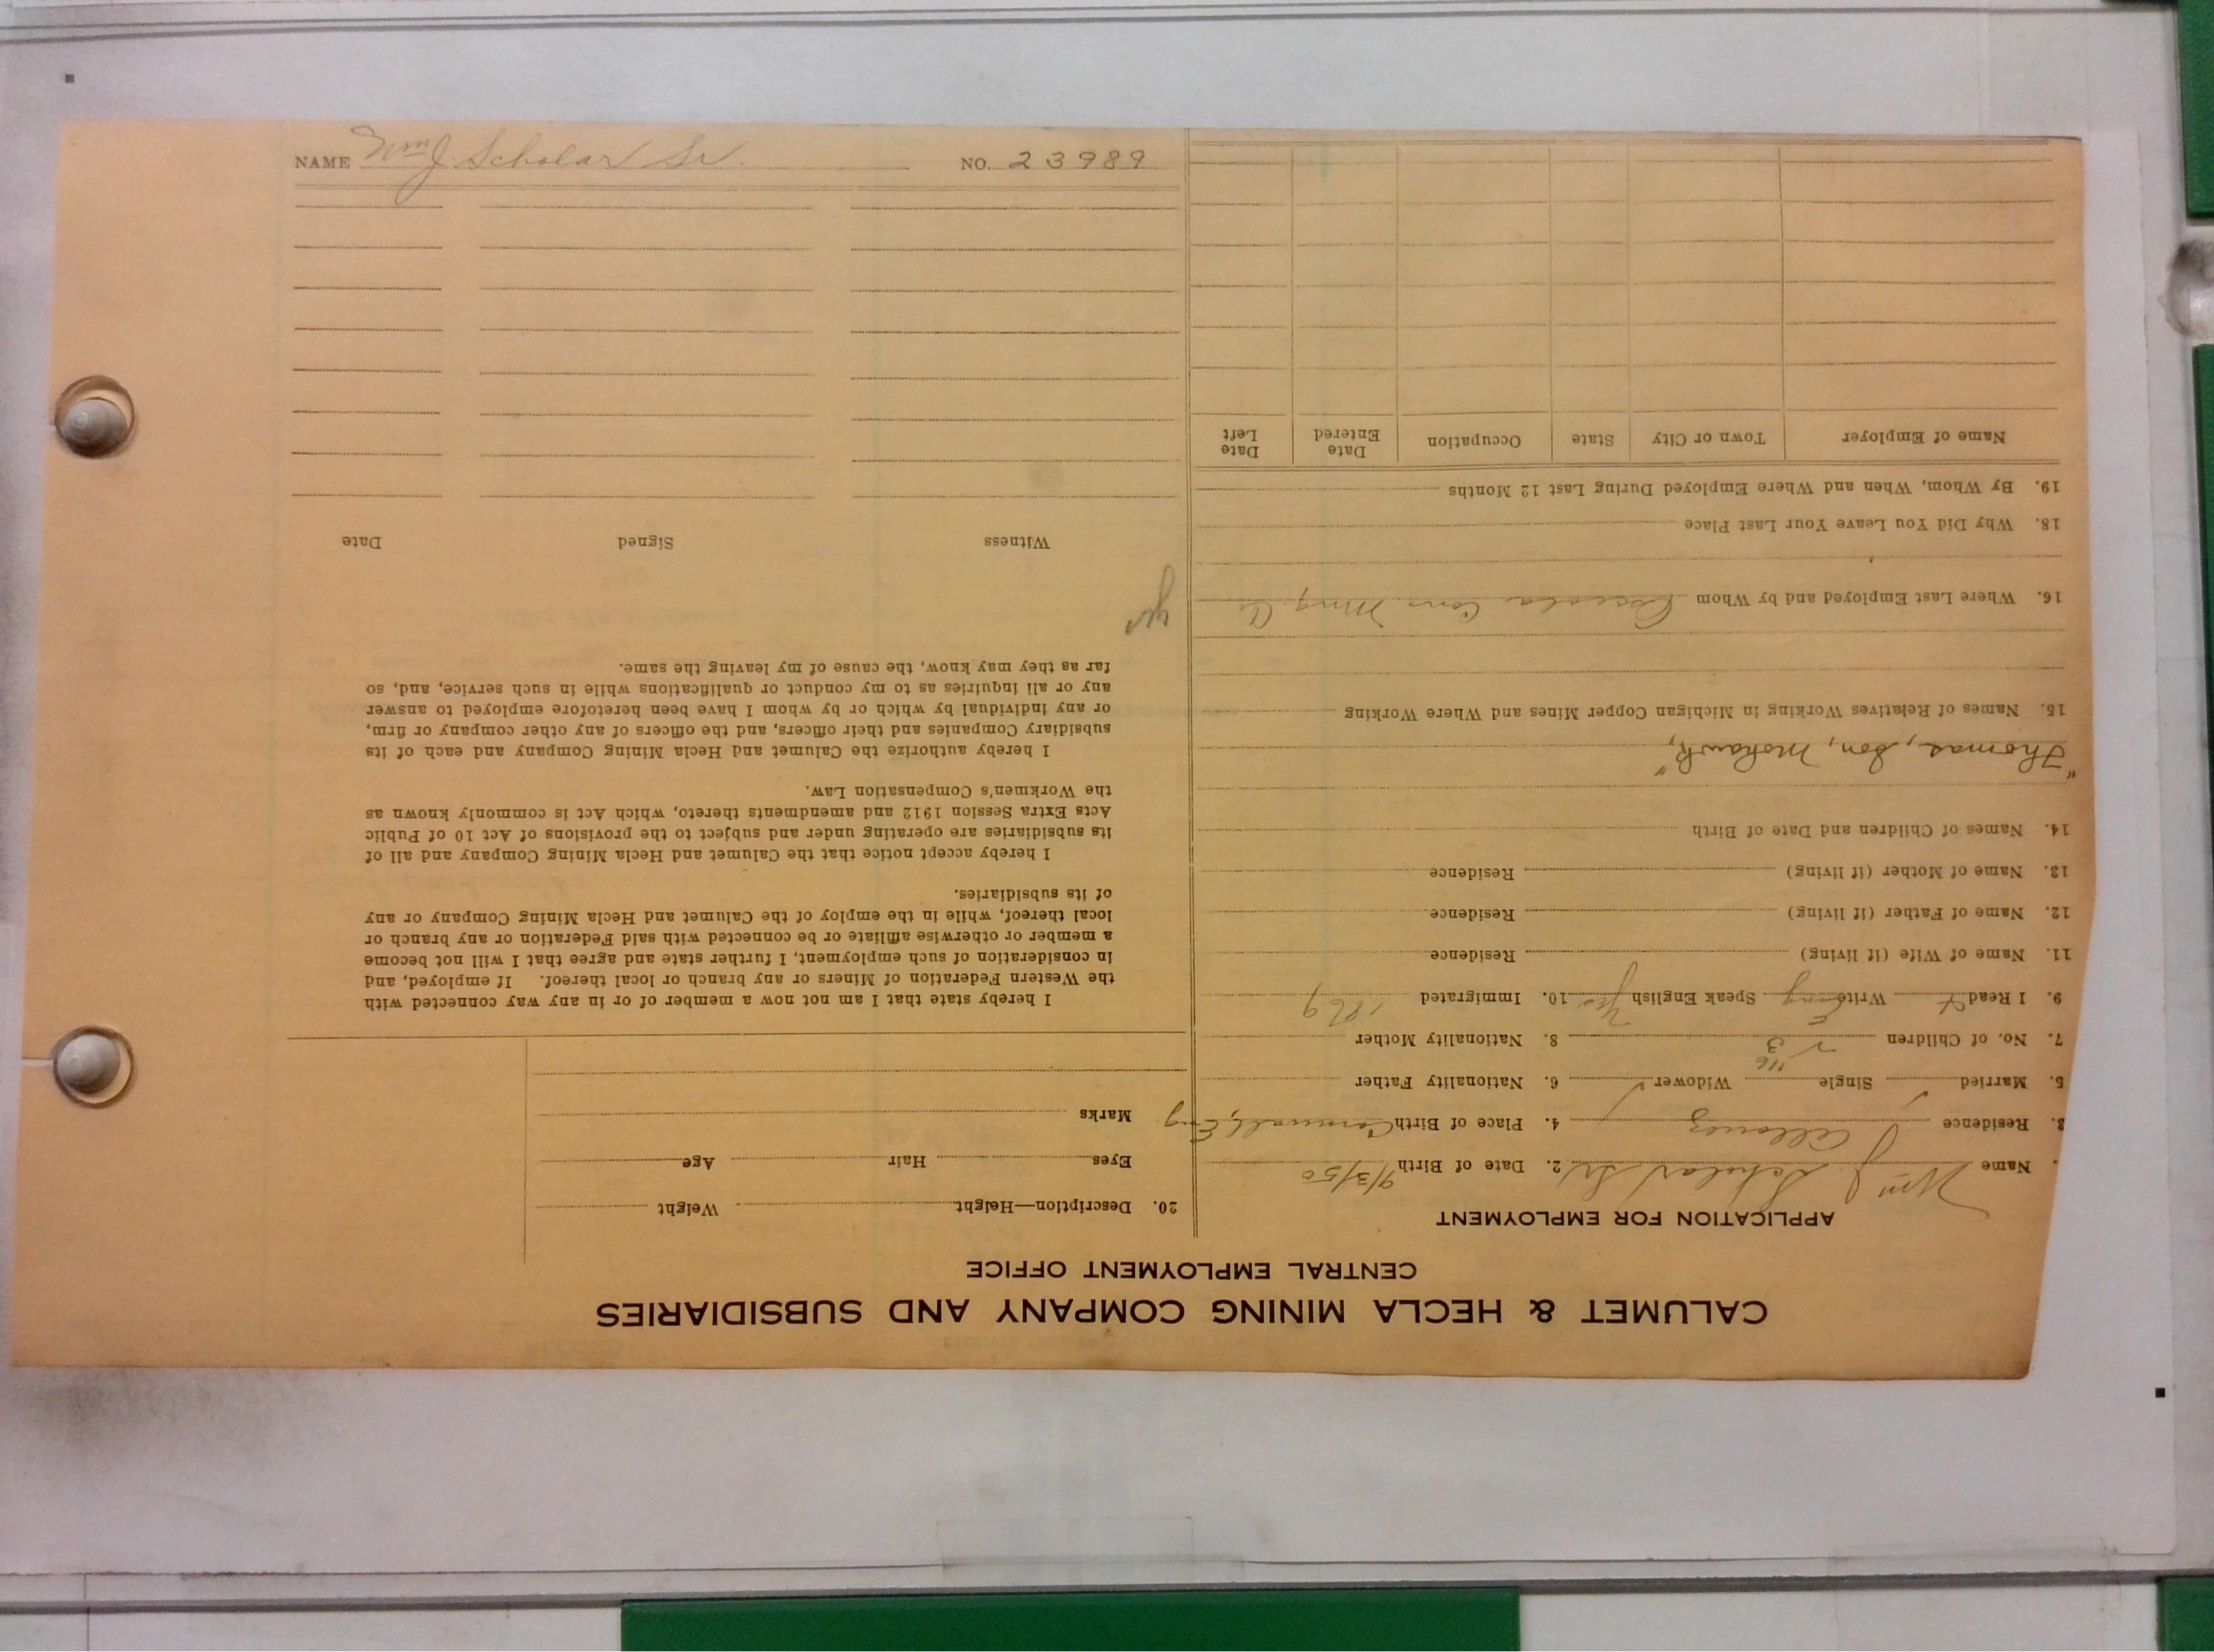 CALUMET & HECLA MINING COMPANY AND SUBSIDIARIES
CENTRAL EMPLOYMENT OFFICE
APPLICATION FOR EMPLOYMENT
. Name Wm J. Scholar Sr. 2. Date of Birth 9/3/50
3. Residence Allouez 4. Place of Birth Cornwall, Eng
5. Married Single Widower ✓ 6. Nationality Father
7. No. of Children 3 8. Nationality Mother
9. I Read Write Eng Speak English Yes 10. Immigrated 1869
11. Name of Wife (if living) Residence
12. Name of Father (if living) Residence
13. Name of Mother (if living) Residence
14. Names of Children and Date of Birth
"Thomas, Son, Mohawk",
15. Names of Relatives Working in Michigan Copper Mines and Where Working
16. Where Last Employed and by Whom Osceola Cons Mng Co
18. Why Did You Leave Your Last Place
19. By Whom, When and Where Employed During Last 12 Months
Name of Employer Town or City State Occupation Date Entered Date Left
20. Description—Height Weight
Eyes Hair Age
Marks
I hereby state that I am not now a member of or in any way connected with
the Western Federation of Miners or any branch or local thereof. If employed, and
in consideration of such employment, I further state and agree that I will not become
a member or otherwise affiliate or be connected with said Federation or any branch or
local thereof, while in the employ of the Calumet and Hecla Mining Company or any
of its subsidiaries.
I hereby accept notice that the Calumet and Hecla Mining Company and all of
its subsidiaries are operating under and subject to the provisions of Act 10 of Public
Acts Extra Session 1912 and amendments thereto, which Act is commonly known as
the Workmen's Compensation Law.
I hereby authorize the Calumet and Hecla Mining Company and each of its
subsidiary Companies and their officers, and the officers of any other company or firm,
or any individual by which or by whom I have been heretofore employed to answer
any or all inquiries as to my conduct or qualifications while in such service, and, so
far as they may know, the cause of my leaving the same.
Witness Signed Date
NAME Wm J. Scholar Sr. NO. 23989